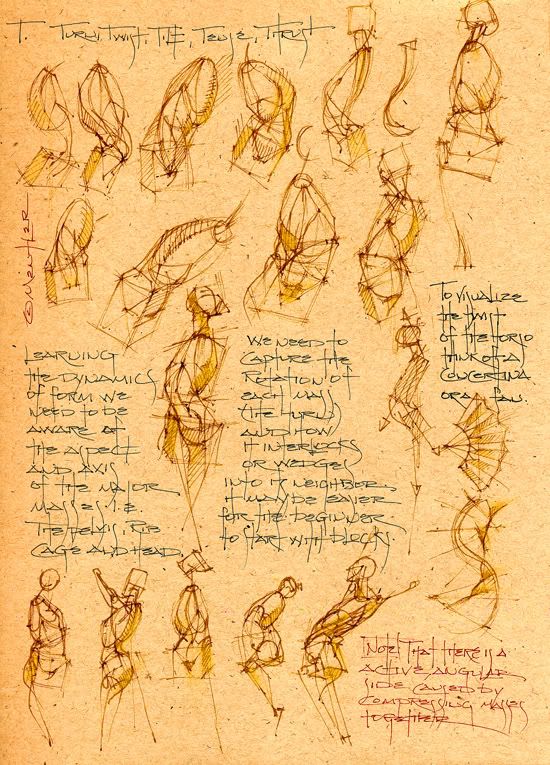 T. Turn, Twist, Tilt, Tense, Thrust
© Mentler
To visualize
the twist
of the torso
think of a
concertina
or a fan.
Learning
the dynamics
of form we
need to be
aware of
the aspect
and axis
of the major
masses i.e.
the pelvis, rib
cage and head.
We need to
capture the
rotation of
each mass
(the turn)
and how
it interlocks
or wedges
into its neighbor.
it may be easier
for the beginner
to start with blocks.
Note: that there is a
active/angular
side caused by
compressing masses
together